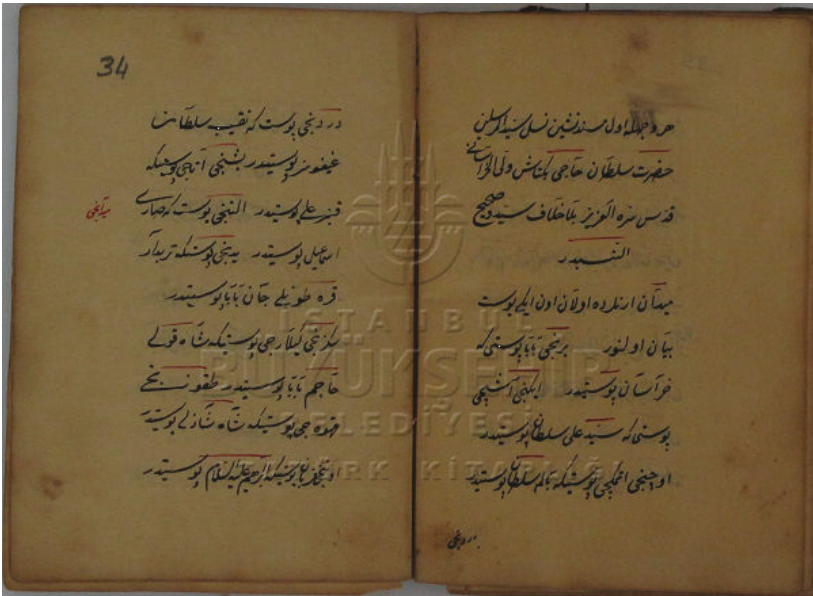 هر وجهله اول مسندنشین نسل سید المرسلین
حضرت سلطان حاجی بکتاش ولی الخراسانی
قدس سره العزیز بلا خلاف سید و صحیح
النسبدر
میدان ارنلرده اولان اون ایکی پوست
بیان اولنور برنجی بابا پوستی که
خراسان پوستیدر ایکنجی آشجی
پوستی که سید علی سلطان پوستیدر
اوچنجی اتمکچی پوستیکه بالم سلطان پوستیدر
دردنجی
34
دردنجی پوست که نقیب سلطان
پوستیدر بشنجی آتاجی پوستیکه
قنبر علی پوستیدر التنجی پوست که صاری
میدانجی
اسماعیل پوستیدر یدنجی پوستیکه تربدار
قره طونلی جان بابا پوستیدر
سکزنجی کیلارجی پوستیکه شاه قولی
حاجم بابا پوستیدر طقوزنجی
قهوه جی پوستیکه شاه شازلی پوستیدر
اوننجی قربان پوستیکه ابرهیم علیه السلام پوستیدر
İSTANBUL
BÜYÜKŞEHİR
BELEDİYESİ
ATATÜRK KİTAPLIĞI